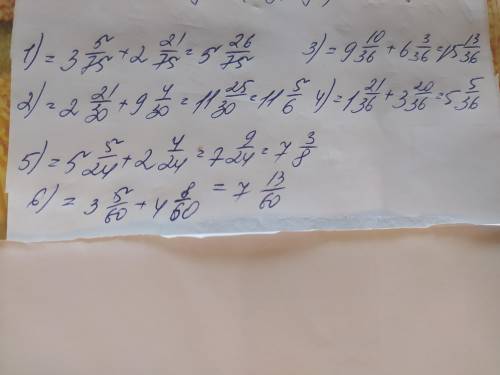 1) = 3 5/75 + 2 21/75 = 5 26/75
3) = 9 10/36 + 6 3/36 = 15 13/36
2) = 2 21/30 + 9 4/30 = 11 25/30 = 11 5/6
4) = 1 21/36 + 3 20/36 = 5 5/36
5) = 5 5/24 + 2 4/24 = 7 9/24 = 7 3/8
6) = 3 5/60 + 4 8/60 = 7 13/60